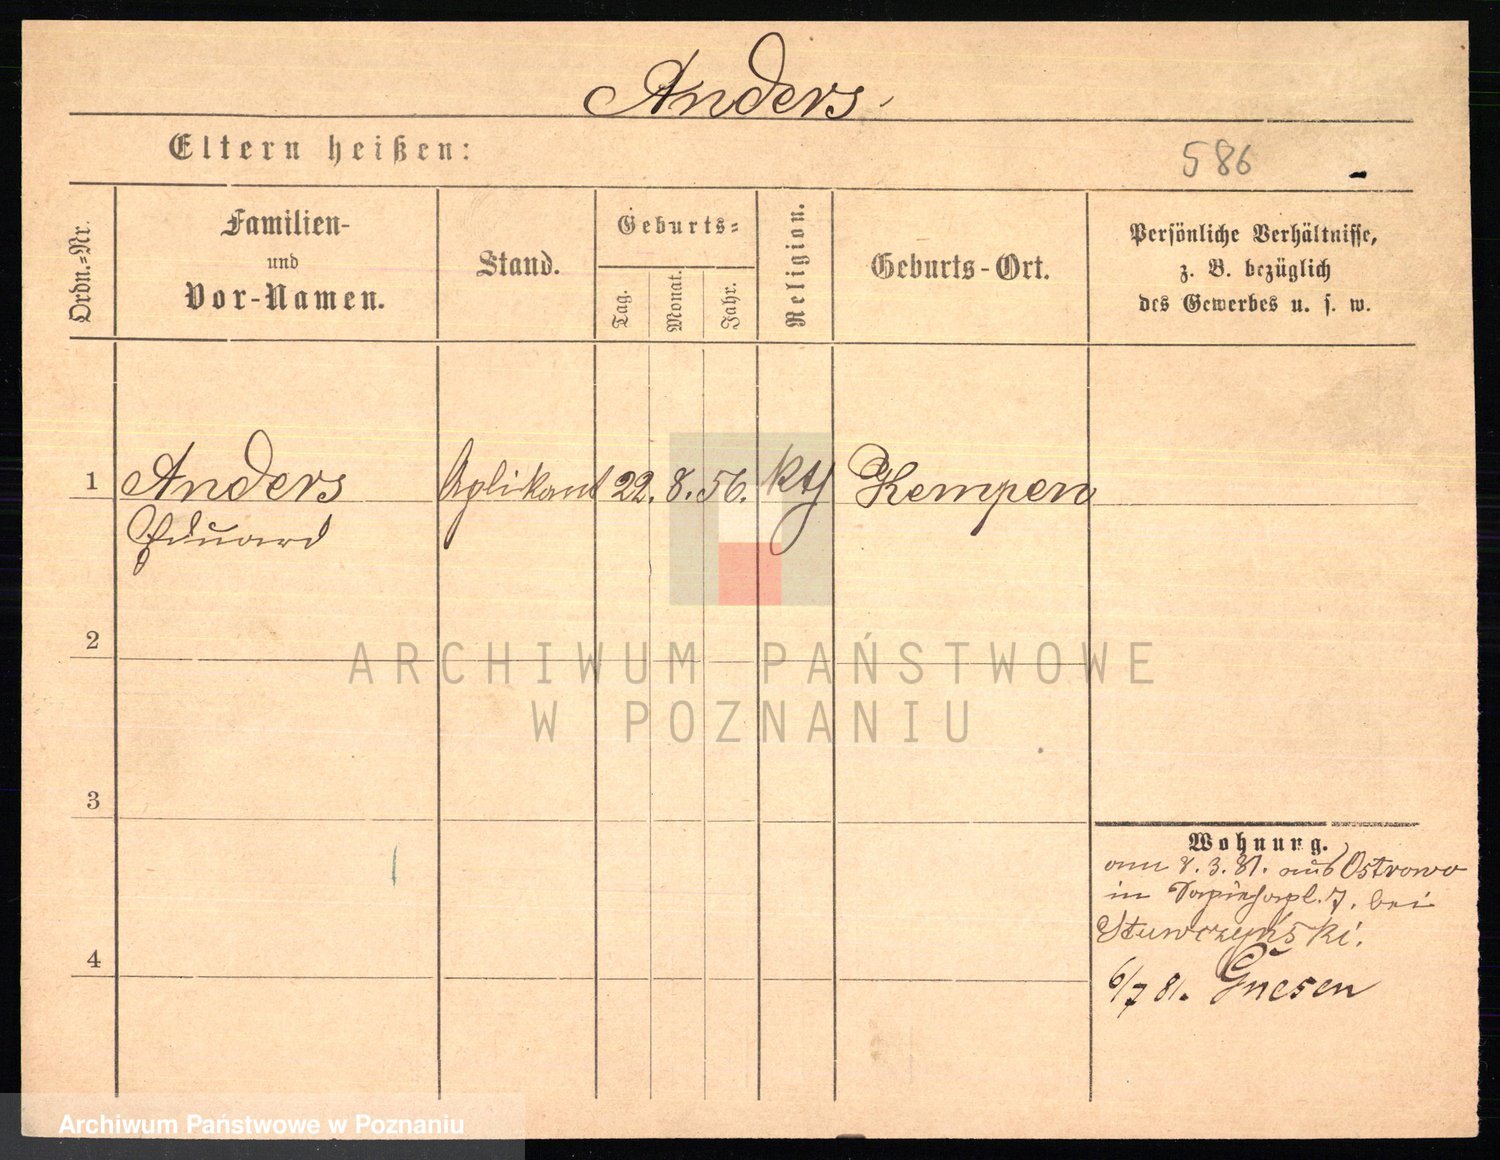 Anders.
Eltern heißen:
586
Ordn.-Nr.
Familien-
und
Vor-Namen.
Stand.
Geburts-
Tag.
Monat.
Jahr.
Religion.
Geburts-Ort.
Persönliche Verhältnisse,
z. B. bezüglich
des Gewerbes u. s. w.
1 Anders Aplikant 22. 8. 56. kth Kempen
Eduard
2
ARCHIWUM PAŃSTWOWE
W POZNANIU
3
Wohnung.
am 8.3.81. aus Ostrowo
in Sapiehapl. 7. bei
Stuwczyński.
4
6/7 81. Gnesen
Archiwum Państwowe w Poznaniu